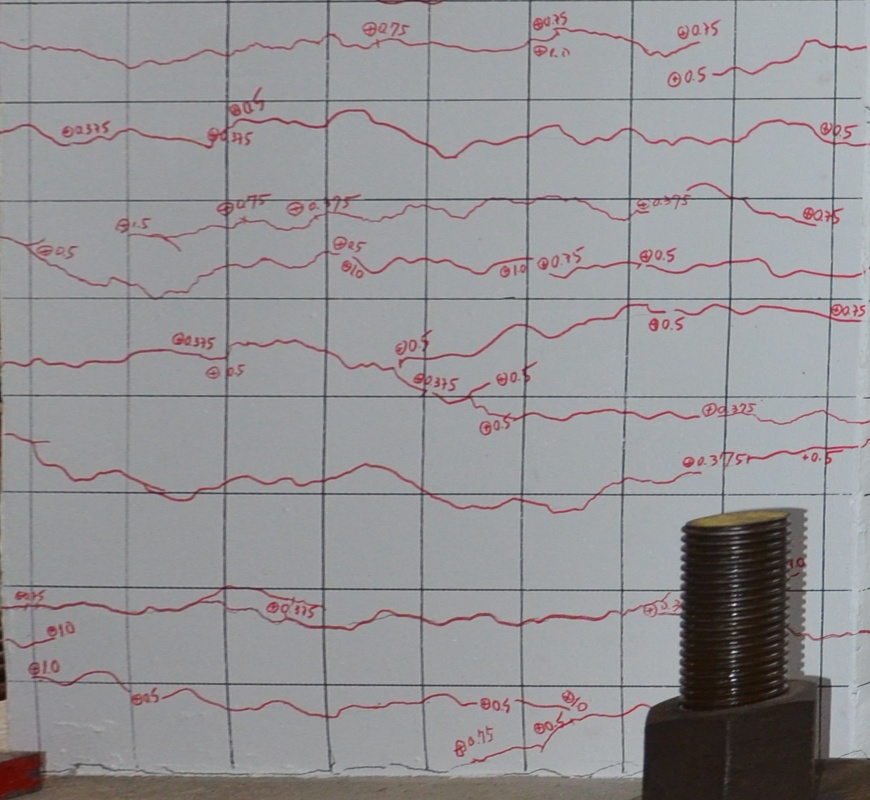 ⊕0.75 ⊕0.75 ⊕0.75
⊕1.0
⊕0.5
⊕0.5
⊕0.375 ⊕0.375 ⊕0.5
⊕0.75 ⊕0.375 ⊕0.375 ⊕0.75
⊕1.5
⊕0.5 ⊕0.5
⊕1.0 ⊕1.0 ⊕0.75 ⊕0.5
⊕0.75
⊕0.5
⊕0.375 ⊕0.5
⊕0.5 ⊕0.375 ⊕0.5
⊕0.5 ⊕0.375
⊕0.375 +0.5
⊕0.75 ⊕0.375
⊕1.0
⊕1.0
⊕0.5 ⊕0.5 ⊕1.0
⊕0.5
⊕0.75